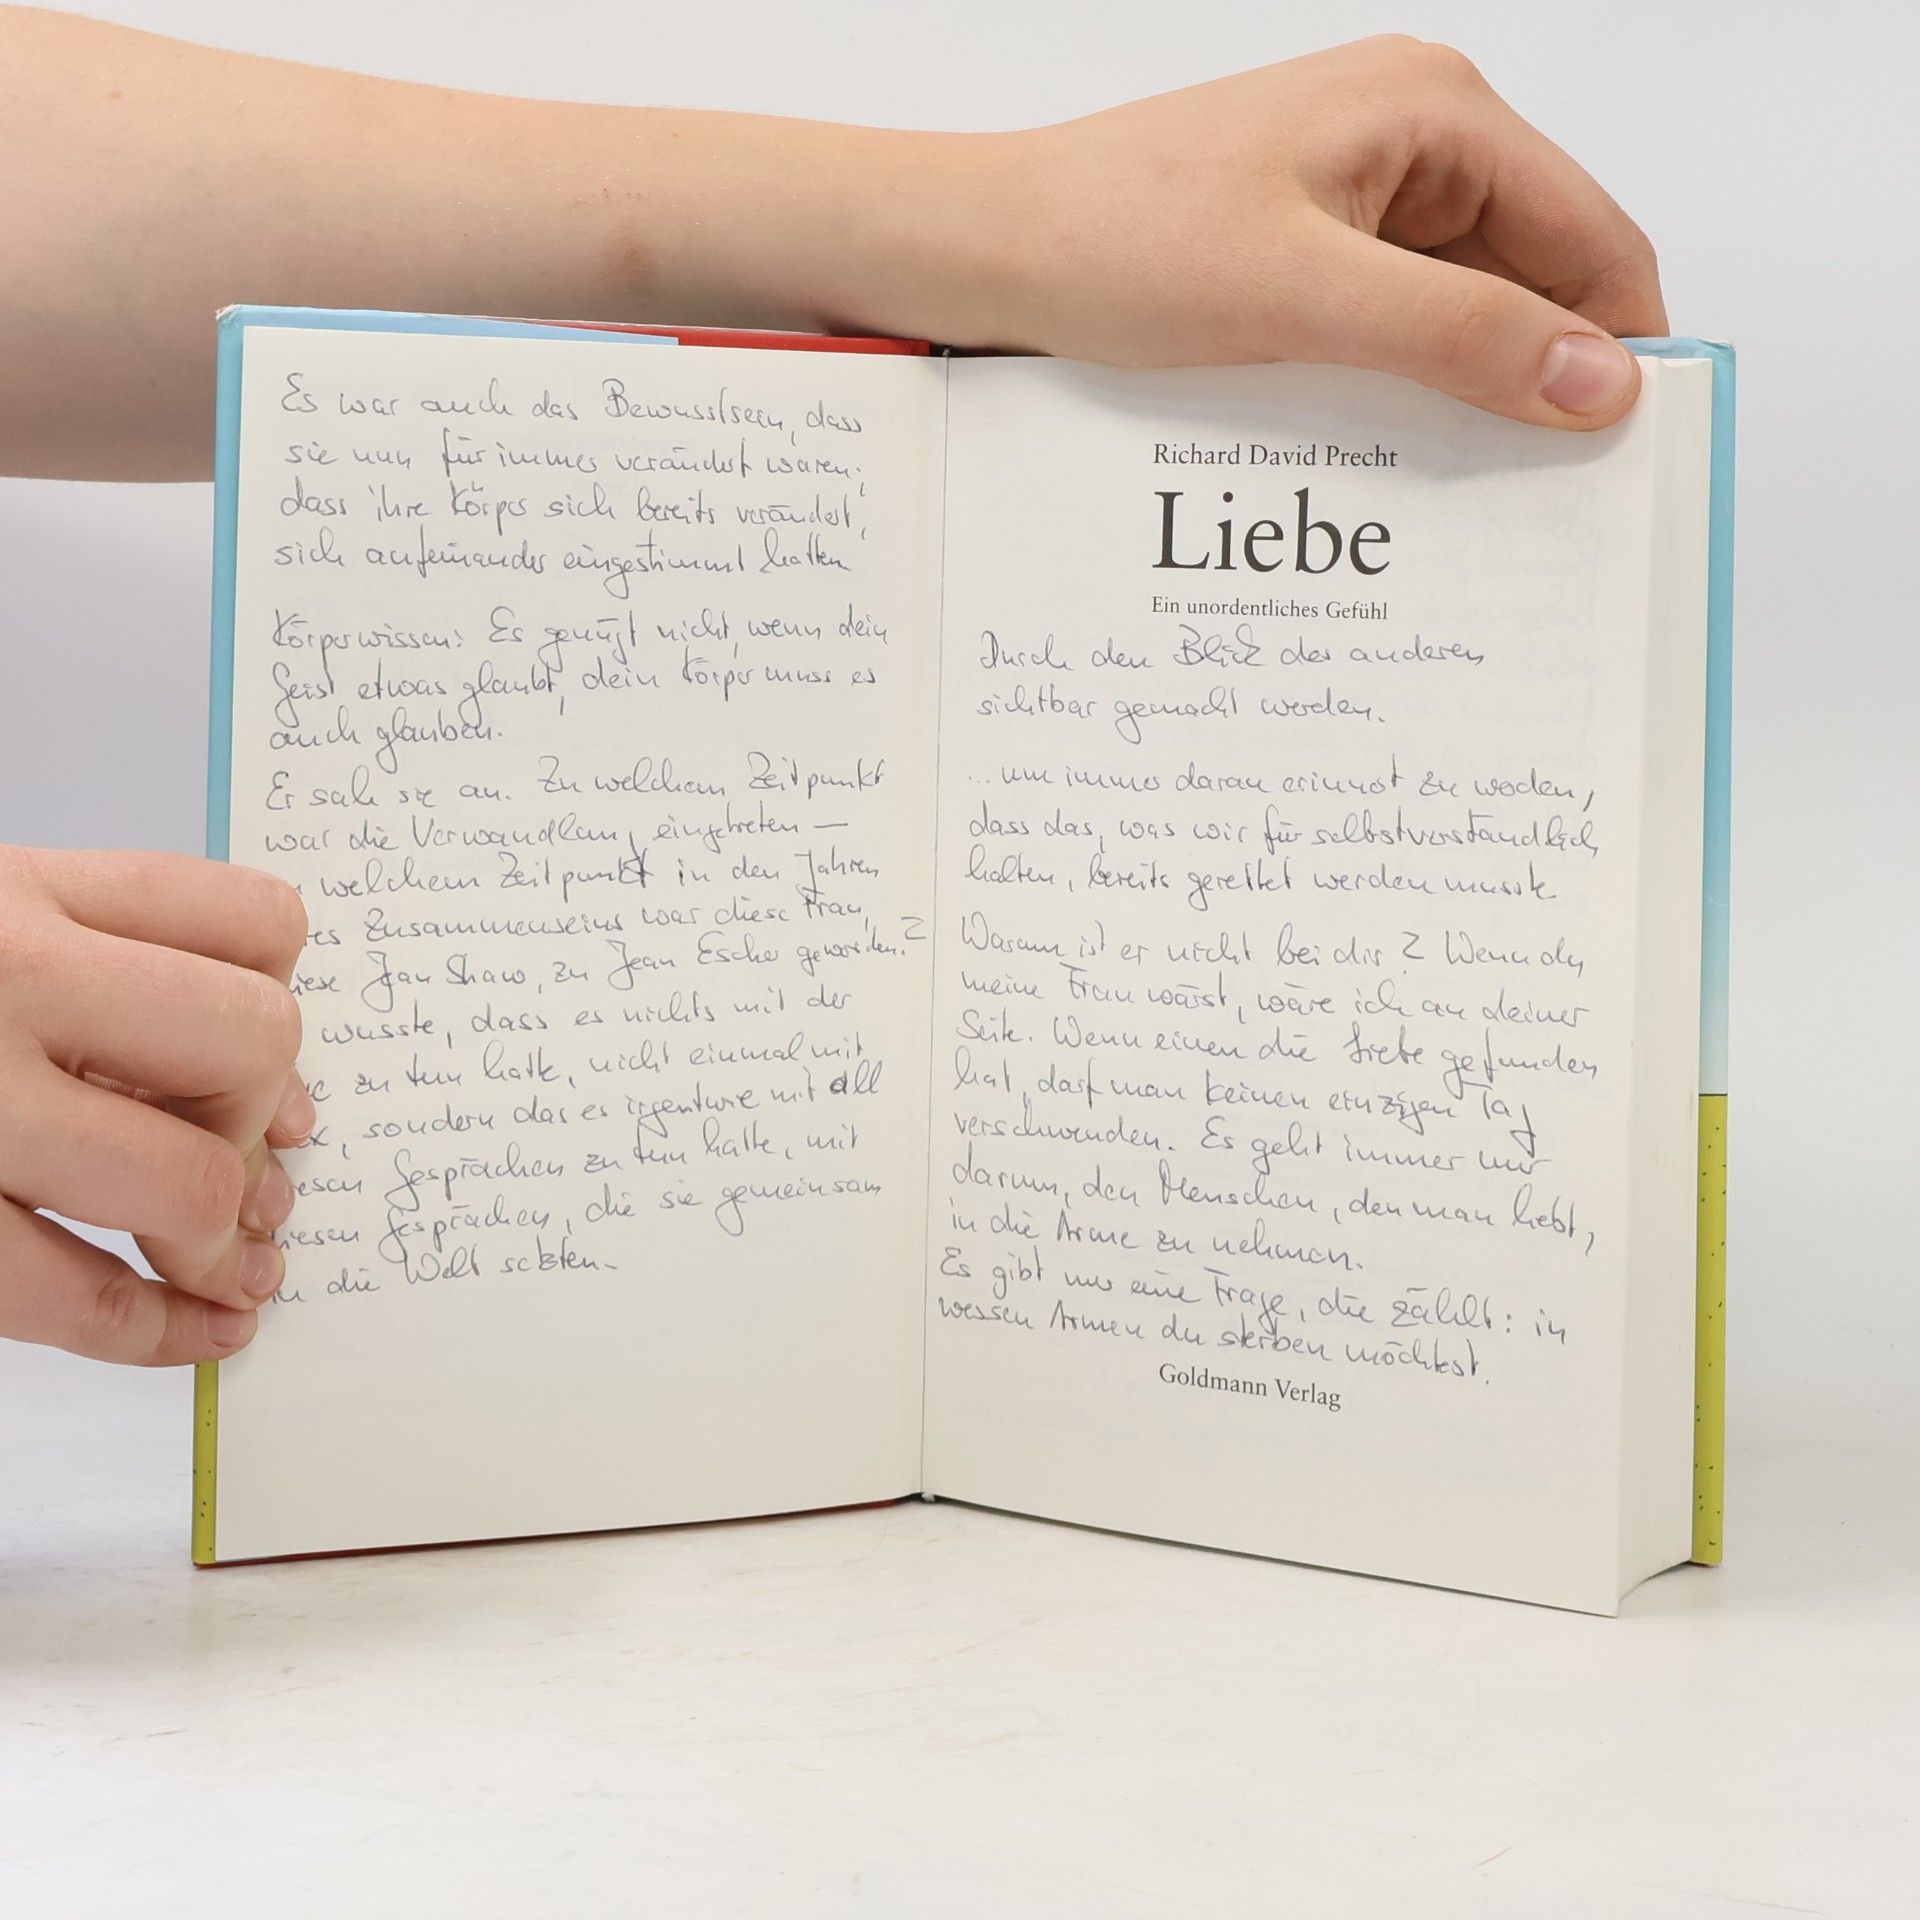 Es war auch das Bewusstsein, dass
sie nun für immer verändert waren,
dass ihre Körper sich bereits verändert,
sich aufeinander eingestimmt hatten
Körperwissen: Es genügt nicht, wenn dein
Geist etwas glaubt, dein Körper muss es
auch glauben.
Er sah sie an. Zu welchem Zeitpunkt
war die Verwandlung eingetreten —
welchem Zeitpunkt in den Jahren
res Zusammenseins war diese Frau,
iese Jean Shaw, zu Jean Escher geworden?
wusste, dass es nichts mit der
zu tun hatte, nicht einmal mit
x, sondern das es irgentwie mit all
esen Gesprächen zu tun hatte, mit
iesen Gesprächen, die sie gemeinsam
in die Welt setzten.
Richard David Precht
Liebe
Ein unordentliches Gefühl
Durch den Blick des anderen
sichtbar gemacht werden.
... um immer daran erinnert zu werden,
dass das, was wir für selbstverständlich
halten, bereits gerettet werden musste.
Warum ist er nicht bei dir? Wenn du
meine Frau wärst, wäre ich an deiner
Seite. Wenn einen die Liebe gefunden
hat, darf man keinen einzigen Tag
verschwenden. Es geht immer nur
darum, den Menschen, den man liebt,
in die Arme zu nehmen.
Es gibt nur eine Frage, die zählt: in
wessen Armen du sterben möchtest.
Goldmann Verlag